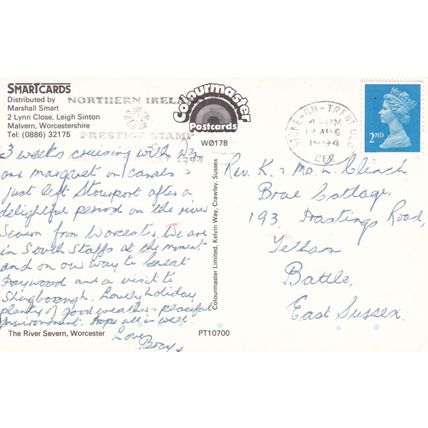 SMARTCARDS
Distributed by
Marshall Smart
2 Lynn Close, Leigh Sinton
Malvern, Worcestershire
Tel: (0886) 32175
NORTHERN IRELAND
PRESTIGE STAMP
Colourmaster
Postcards
W0178
STOKE-ON-TRENT
4-PM
12 AUG
1994
2ND
3 weeks cruising with
our margaret on canals
just left Stourport after a
delightful period on the river
Severn from Worcester. We are
in South Staffs at the moment
and on our way to Great
Haywood and a visit to
Shugborough. Lovely holiday
plenty of good weather & peaceful
environment. Hope all is well.
Love
Rev. K & Mrs L Clinch
Brae Cottage,
193, Hastings Road,
Telham
Battle,
East Sussex.
Colourmaster Limited, Kelvin Way, Crawley, Sussex
The River Severn, Worcester
PT10700